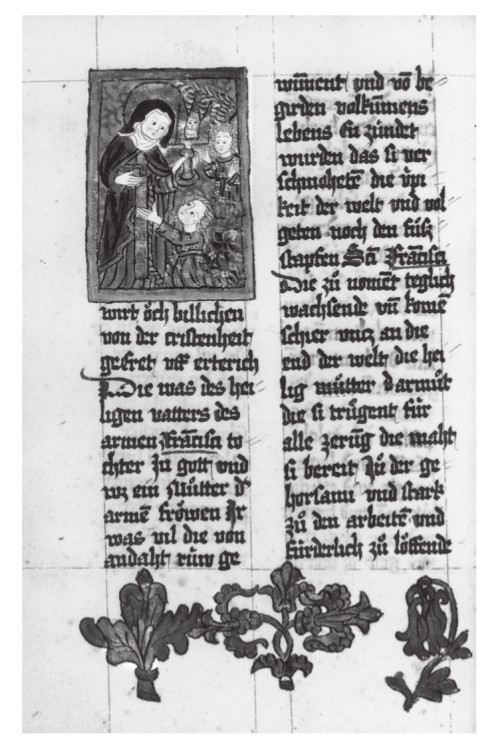 wirt öch billichen
von der cristenheit
geeret vff erterich
Die was des hei
ligen vatters des
armen Francisci to
chter zu gott vnd
wz ein Mutter dˢ
armē fröwen Jr
was vil die von
andaht rüw ge
wīnent vnd vō be
girden volkūmens
lebens En zündet
wurden das si ver
schmohetē die vpi
keit der welt vnd vol
geten noch den fúsz
stapfen Scī Frācisci
Die zů nomēt teglich
wachsende vn̄ komē
schier vntz an die
end der welt die hei
lig můtter d armůt
die si trůgent für
alle zerūg die maht
si bereit zů der ge
horsam vnd stark
zů den arbeitē vnd
fürderlich zů